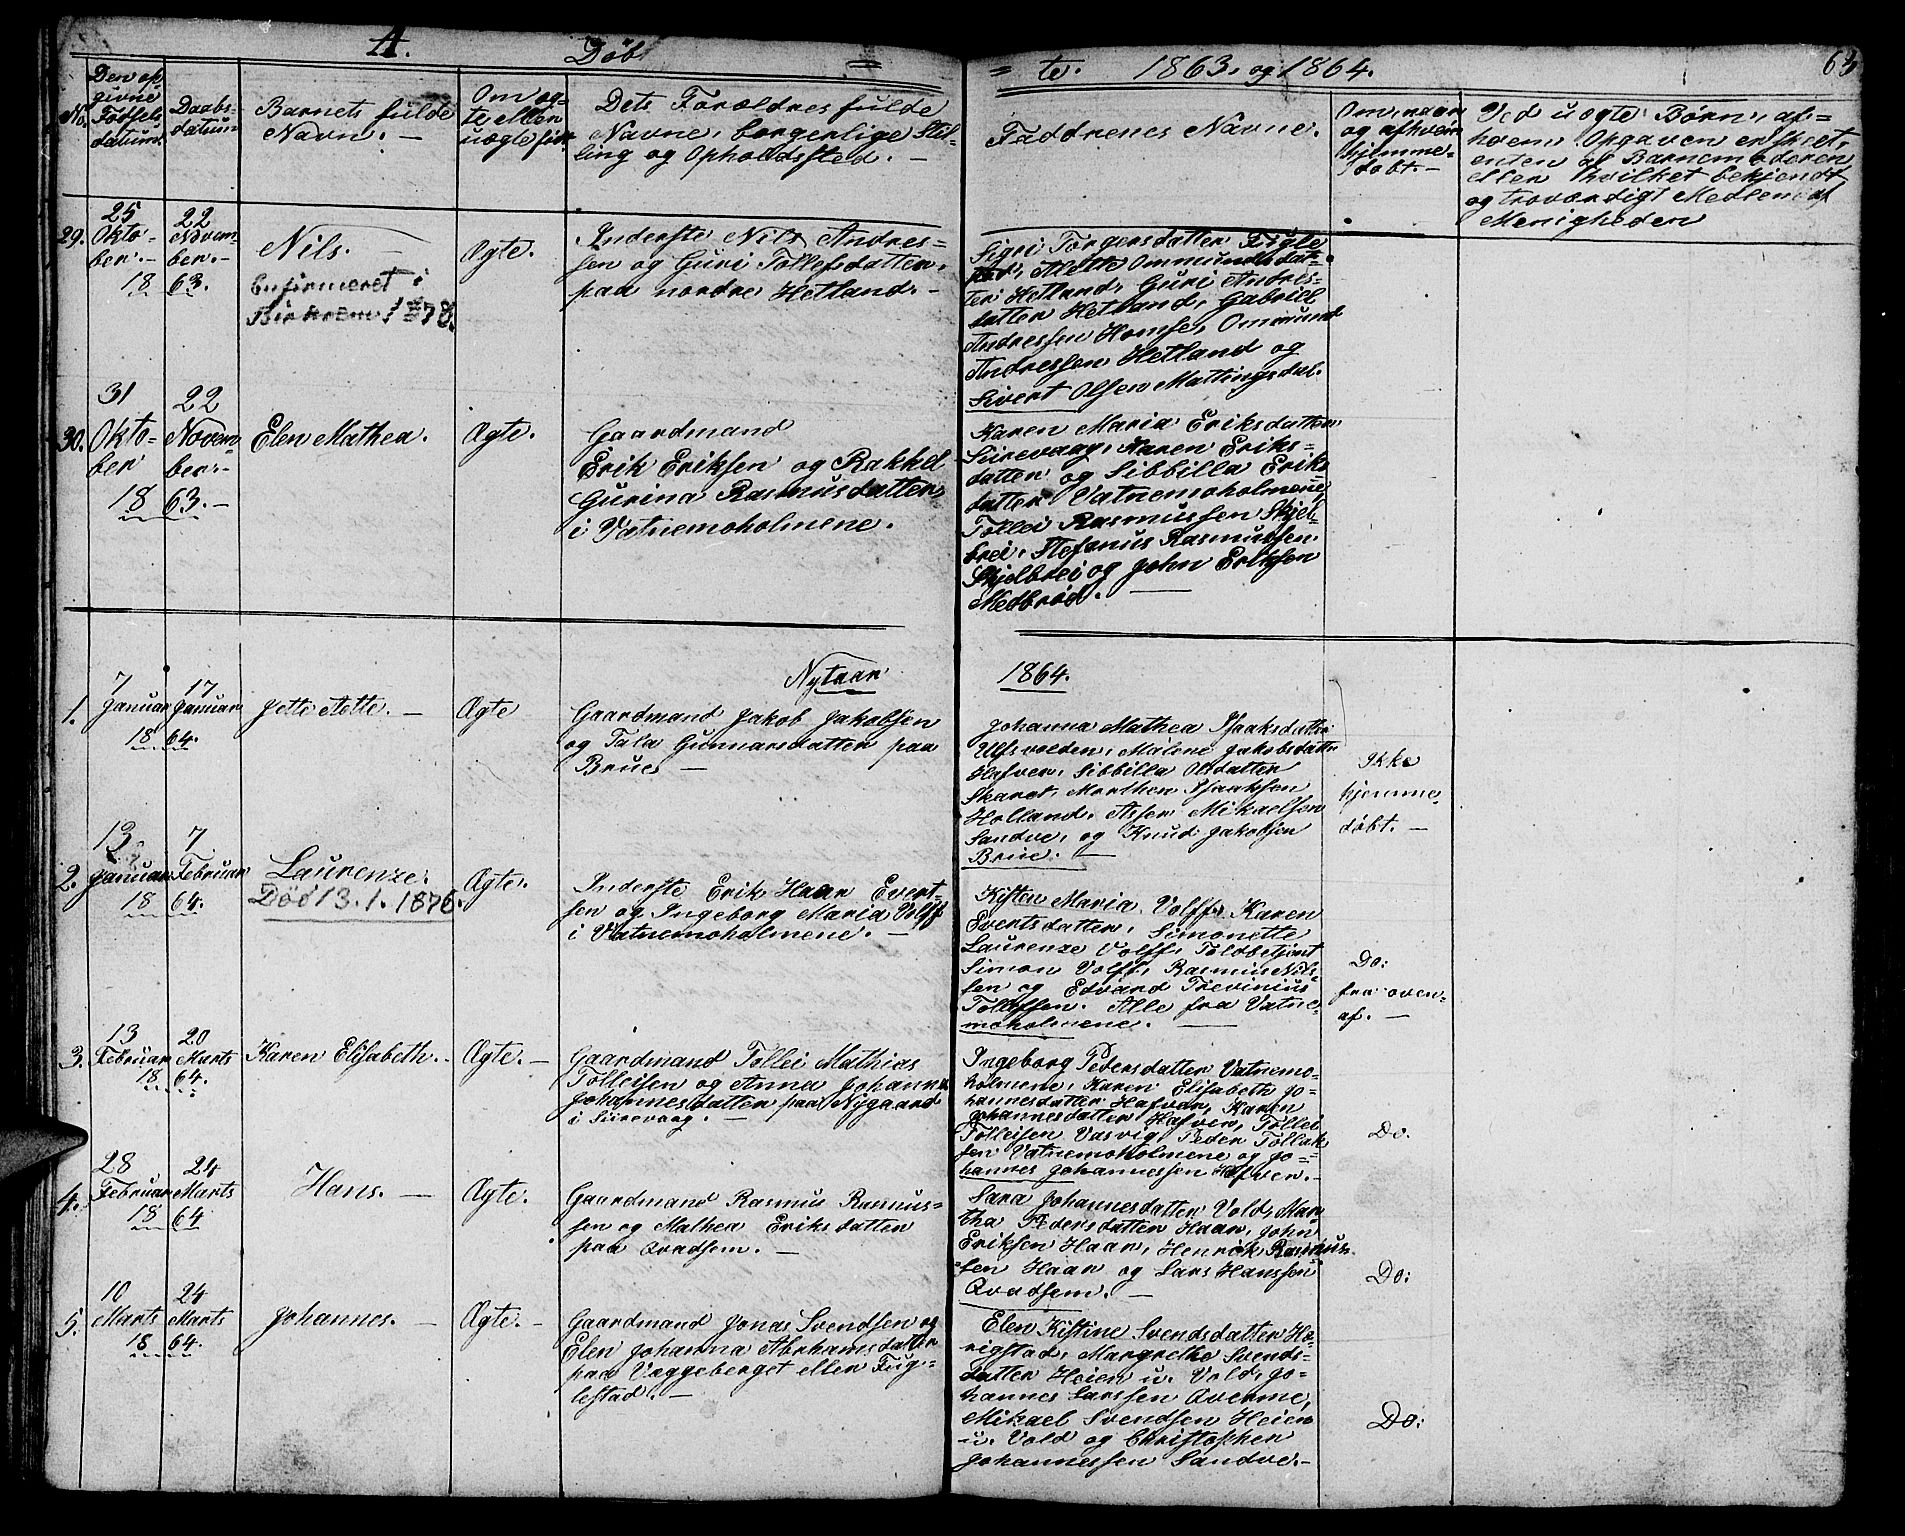 A. Døb= =te. 1863. og 1864. 63
No.
Den op-
givne
Fødsels
datum.
Daabs-
datum
Barnets fulde
Navn. —
Om æg-
te eller
uægte født
Dets Forældres fulde
Navne, borgerlige Stil-
ling og Opholdssted. —
Faddrenes Navne.
Om, naar
og af hvem
hjemme-
døbt. —
Ved uægte Børn, af
hvem Opgaven er skeet,
enten af Barnemoderen
eller hvilket bekjendt
og troværdigt Medlem af
Menigheden
29.
25
Okto-
ber. —
22
Novem-
ber. —
18 63.
Nils.
Confirmeret i
Birkrem 1878.
Ægte.
Inderste Nils Andres-
sen og Guri Tollefsdatter
paa nordre Hetland. —
Sigri Torgersdatter Fugle
stad, Aleth Ommundsdat-
ter Hetland, Guri Andres-
datter Hetland, Gabriel
Andressen Homse, Ommund
Andressen Hetland og
Sivert Olsen Mattingsdal.
30.
31
Okto-
ber
22
Novem-
ber. —
18 63. —
Elen Mathea.
Ægte.
Gaardmand
Erik Eriksen og Rakkel
Gurina Rasmusdatter
i Vatnemoholmene.
Karen Maria Eriksdatter
Sirevaag, Karen Eriks-
datter og Sibbilla Eriks
datter Vatnemoholmene,
Tollei Rasmussen Skjel-
brei, Stefanus Rasmussen
Skjelbrei og John Eriksen
Medbrød. —
Nytaar 1864.
1.
7
Januar
17
Januar
18 64.
Jette Aette. —
Ægte
Gaardmand Jakob Jakobsen
og Tala Gunnarsdatter paa
Brue —
Johanna Mathea Isaaksdatter
Ulsvolden, Malene Jakobsdatter
Hafven, Sibbilla Olsdatter
Skaret, Morthen Isaaksen
Holland, Asser Mikaelsen
Sandve, og Knud Jakobsen
Brue. —
Ikke
hjemme-
døbt. —
2.
13
Januar
7
Februar
18 64.
Laurenze.
Død 13.1.1876.
Ægte.
Inderste Erik Haar Evert-
sen og Ingeborg Maria Volff
i Vatnemoholmene. —
Kisten Maria Volff, Karen
Evertsdatter, Simonette
Laurenze Volff, Toldbetjent
Simon Volff, Rasmus Nil-
sen og Edvard Trevinius
Tollefsen. Alle fra Vatne-
moholmene. —
Do:
fra oven-
af. —
3.
13
Februar
20
Marts
18 64.
Karen Elisabeth. —
Ægte. —
Gaardmand Tollei Mathias
Tolleisen og Anna Johanna
Johannesdatter paa Nygaard
i Sirevaag. —
Ingeborg Pedersdatter Vatnemo-
holmene, Karen Elisabeth Jo-
hannesdatter Hafven, Karen
Johannesdatter Hafven, Tollei
Tolleisen Vasvig, Peder Tollak
sen Vatnemoholmene og Jo-
hannes Johannessen Hafven. —
Do.
4.
28
Februar
24
Marts
18 64
Hans. —
Ægte.
Gaardmand Rasmus Rasmus-
sen og Mathea Eriksdatter
paa Qvadsem. —
Sara Johannesdatter Vold, Mar
tha Pedersdatter Haar, John
Eriksen Haar, Henrik Rasmus-
sen Haar og Lars Hanssen
Qvadsem. —
Do:
5.
10
Marts
24
Marts
18 64.
Johannes. —
Ægte. —
Gaardmand Jonas Svendsen og
Elen Johanna Abrhamsdatter
paa Veggeberget eller Fug-
lestad. —
Elen Kistine Svendsdatter Hæ-
rigstad, Margrethe Svends-
datter Heien u. Vold, Jo-
hannes Larssen Qverme,
Mikael Svendsen Heien
u. Vold og Christopher
Johannessen Sandve. —
Do: